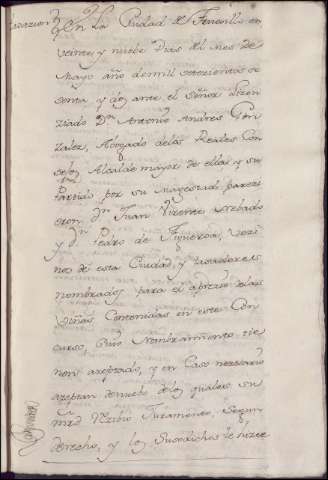 En La Ciudad de
veinte y nueve Dias del Mes de
Mayo año de mil setecientos se
senta y dos ante el señor Lizen
ziado Dn Antonio Andres Gon
zalez, Abogado delos Reales Con
sejos Alcalde mayor de ella y su
Partido por su Magestad parezi
eron Dn Juan Vizente
y Dn Pedro de Figueroa, vezi
nos de esta Ciudad, y tasadores
nombrados para el aprezio delas
Viñas Contenidas en este Con
curso, Cuio Nombramiento tie
nen azeptado, y en Caso nezesario
azeptan de nuebo delos quales su
Mrd Rezibio Juramento, segun
derecho, y los susodichos le hizie